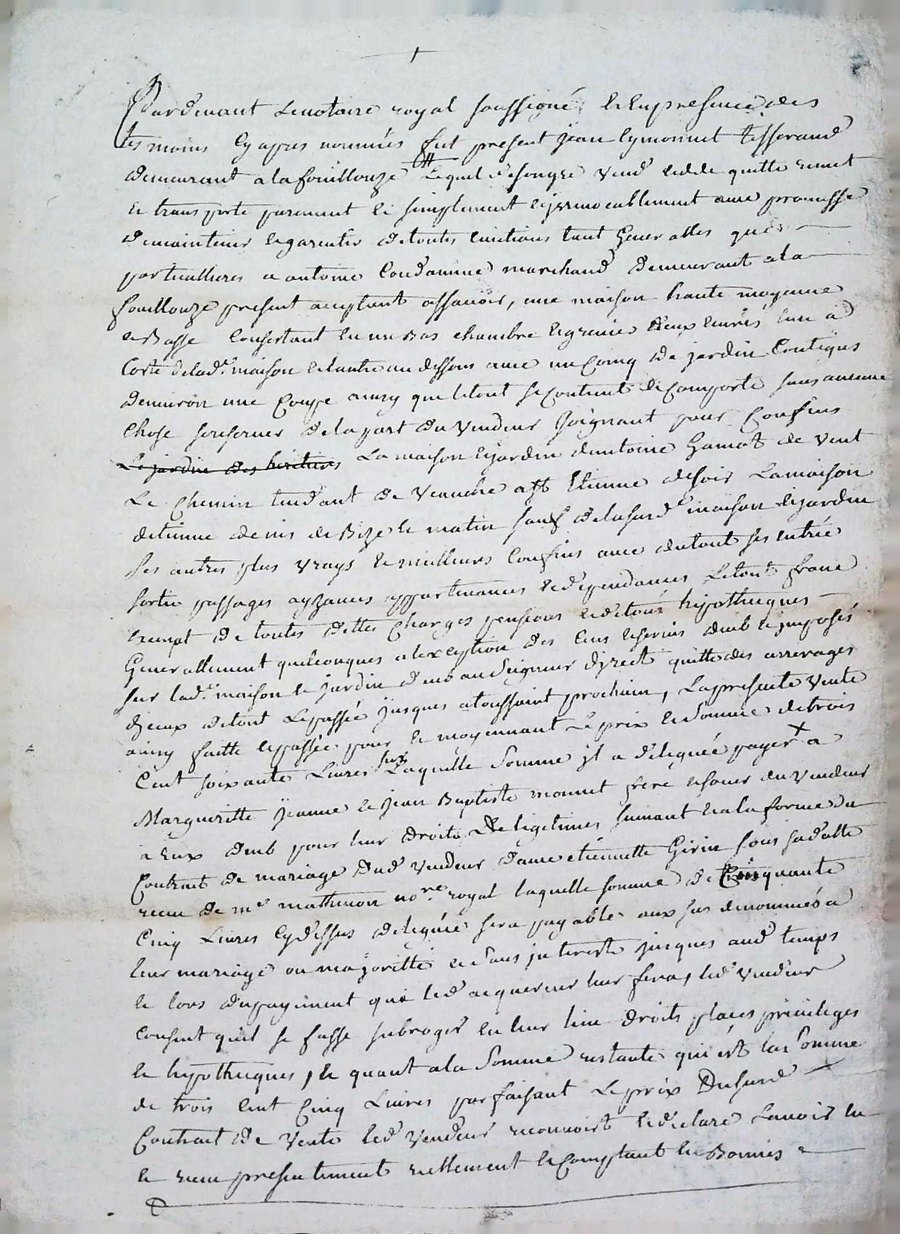 Pardevant Le notaire royal soussigné et en presence des
tesmoins cy apres nommés fut present jean eymonnet tisserand
demeurant a la fouillouze lequel de son gre vend cedde quitte remet
et transporte purement et simplement et jrrevocablement avec promesse
de maintenir et garentir de toutes evictions tant Generalles que
particullieres a antoine Coudamine marchand demeurant a la
fouillouze present acceptant assavoir, une maison haute moyenne
et Basse Consistant en un Bas chambre et grenie deux Cuves une a
Coste de lad.e maison et l'autre au dessous avec un Coing de jardin Contigus
denuiron une Coupe ainsy que le tout se Contient et Comporte sans aucune
chose se reserver de la part du vendeur joignant pour Confins
Le jardin des heritiers La maison et jardin d'antoine Gamot de vent
Le chemin tendant de a St Etienne de soir La maison
d'etienne denis de Bize et matin sauf de la susd.e maison et jardin
ses autres plus vrays et meilleurs Confins avec du tout ses entrée
sortie passages ayzances appartenances et dependances Le tout franc
exempt de toutes dettes Charges pensions et de tous hipotheques
Generallement quelconques a l'exception des Cens et servis deub et jmposés
sur lad.e maison et jardin deub au Seigneur direct quitte des arrerages
d'jceux de tout Le passée jusques a toussaint prochain, La presente vente
ainsy faitte et passée pour et moyennant Le prix et Somme de trois
Cent soixante Livres sur Laquelle Somme jl a deleguée payer a
Margueritte jeanne et jean Baptiste monnet frere et soeur du vendeur
a Eux deub pour leur droits de legitimes suivant et a la forme du
Contrat de mariage dud vendeur d'avec etiennette Girin sous sa datte
receu de me mathinon no.re royal laquelle somme de Cinquante
Cinq Livres cy dessus deleguée sera payable aux sus denommés a
leur mariage ou majoritté et sans jnterests jusques aud temps
et lors du payement que led acquereur leur fera, led vendeur
Consent quil se fasse subroger en leur lieu droits places privileges
et hypotheques, et quant a la Somme restante qui est la Somme
de trois Cent Cinq Livres parfaisant Le prix Du susd
Contrat de vente led vendeur reconnoist et declare L'avoir eu
et receu presentement reellement et Comptant en Bonnes